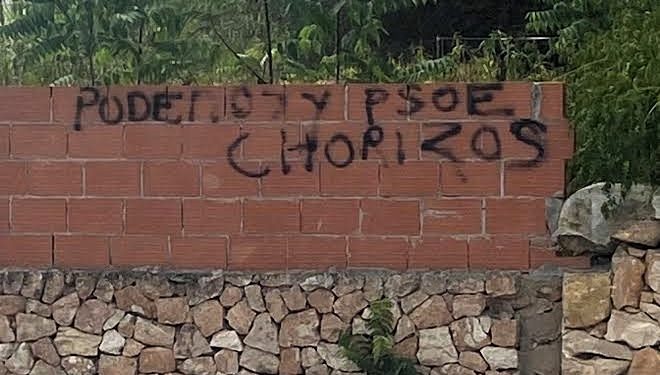 PODEMOS Y PSOE
CHORIZOS